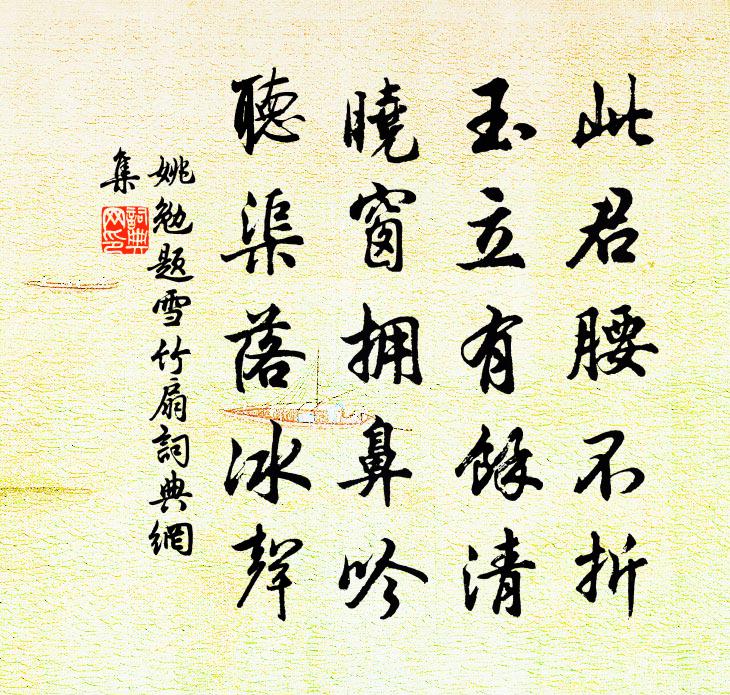 此君腰不折
玉立有餘清
曉窗拥鼻吟
聽渠落冰聲
姚勉題雪竹扇詞典網
集
詞典
网印